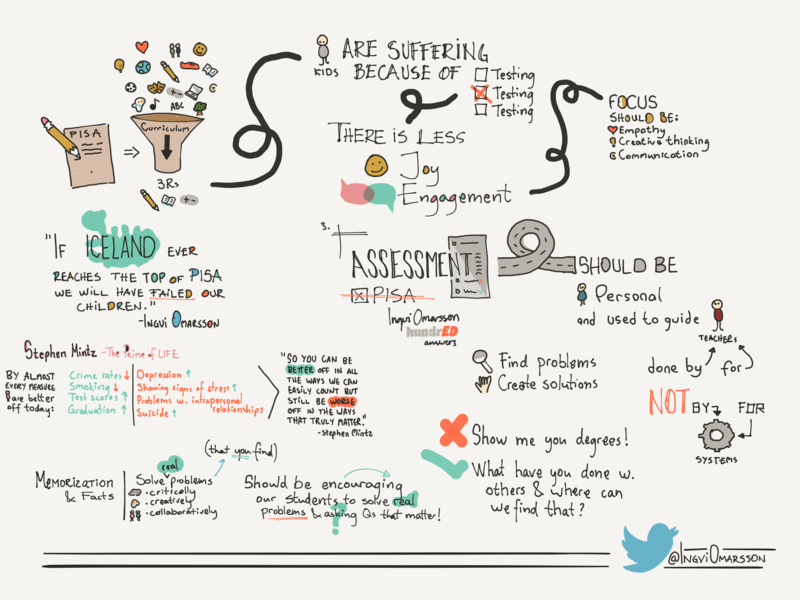 PISA
ABC
Curriculum
3Rs
KIDS
ARE SUFFERING
BECAUSE OF
Testing
Testing
Testing
THERE IS LESS
Joy
Engagement
FOCUS
SHOULD BE:
Empathy
Creative thinking
Communication
"IF ICELAND EVER
REACHES THE TOP OF PISA
WE WILL HAVE FAILED OUR
CHILDREN."
-INGVI OMARSSON
3.
ASSESSMENT
PISA
Ingvi Omarsson
hundrED
answers
SHOULD BE
Personal
and used to guide
TEACHERS
done by for
NOT BY FOR
SYSTEMS
Find problems
Create solutions
Stephen Mintz - The Prime of LIFE
BY ALMOST
EVERY MEASURE
R are better
off today:
Crime rates ↓
Smoking ↓
Test scores ↑
Graduation ↑
Depression ↑
Showing signs of stress ↑
Problems w. intrapersonal
relationships
Suicide ↑
"SO YOU CAN BE
BETTER OFF IN ALL
THE WAYS WE CAN
EASILY COUNT BUT
STILL BE WORSE
OFF IN THE WAYS
THAT TRULY MATTER."
-Stephen Mintz
Show me you degrees!
What have you done w.
others & where can
we find that?
MEMORIZATION
& FACTS
(that you find)
real
Solve problems
·critically
·creatively
·collaboratively
Should be encouraging
our students to solve real
problems & asking Qs that matter!
?
@INGVIOMARSSON